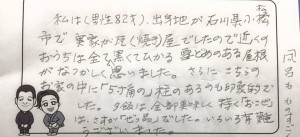 私は(男性82才)、出身地が石川県小松
市で実家が瓦(焼き)屋でしたので近くの
おうちは全て黒くてひかる雪とめのある屋根
がなつかしく思いました。さらにこちらの
お家の中に「5寸角の」柱のあるのも印象的で
した。夕飯は全部美味しく
は、さすが「ぜっ品」でした。いろいろ有難
うございました。
風呂も